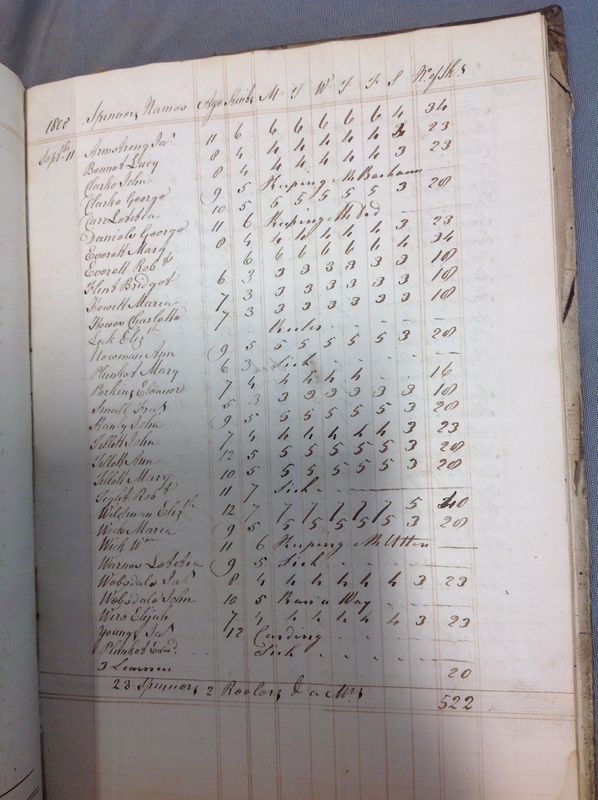 1808 Spinners Names Age Stint M T W T F S No. of Sks
Septbr 11 Armstrong Jas 11 6 6 6 6 6 6 4 34
Bennet Lucy 8 4 4 4 4 4 4 3 23
Clarke John 8 4 4 4 4 4 4 3 23
Clarke George 9 5 Keeping Mr
Carr Letitia 10 5 5 5 5 5 5 3 28
Daniels George 11 6 Keeping
Everett Mary 8 4 4 4 4 4 4 3 23
Everett Robt 6 6 6 6 6 4 34
Flint Bridget 6 3 3 3 3 3 3 3 18
Howitt Maria 7 3 3 3 3 3 3 3 18
Howes Charlotte 7 3 3 3 3 3 3 3 18
Lock Elizth
Newman Ann 9 5 5 5 5 5 5 3 28
Plunket Mary 6 3 Sick
Perkins Eleanor 7 4 4 4 4 4 16
Small 5 3 3 3 3 3 3 3 18
John 9 5 5 5 5 5 5 3 28
Tillett John 7 4 4 4 4 4 4 3 23
Tillett Ann 12 5 5 5 5 5 5 3 28
Tillett Mary 10 5 5 5 5 5 5 3 28
Robt 11 7 Sick
Wildman Elizth 12 7 7 7 7 7 7 5 40
Wick Maria 9 5 5 5 5 5 5 3 28
Wick Wm 11 6 Keeping
Warnes Letitia 9 5 Sick
Websdale Jas 8 4 4 4 4 4 4 3 23
Websdale John 10 5 Way
Elijah 7 4 4 4 4 4 4 3 23
Youngs Jas 12 Carding
Plunket Edwd Sick
3 Learners 20
23 Spinners 2 Reelers 522